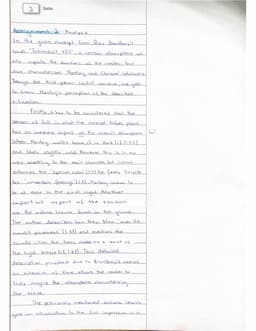 2 Date
Assignment 2: Analysis
In the given excerpt from Ray Bradbury's
novel "Fahrenheit 451", a certain atmosphere not
only impacts the emotions of the reader but
also characterizes Montag and Clarisse' relationship.
Through the third person limited narrator, one gets
to know Montag's perception of the described
situation.
Firstly, it has to be considered that the
season of fall in which the excerpt takes place
has an immense impact of the overall atmosphere.
When Montag walks home, it is dark
and likely slightly cold. However, this is in no
way unsettling to the main character, but instead
the "special calm" he feels. Despite
his "uncertain feelings" Montag seems to
be at ease in the quiet night. Another
important aspect of the season
are the autumn leaves found on the ground.
The author describes how they blow "over the
moonlit pavement" and mentions the
sounds which the trees make as a result of
the light breeze. This detailed
description provided due to Bradbury's use of
an extension of time allows the reader to
truly imagine the atmosphere characterizing
the scene.
The previously mentioned autumn leaves
give an introduction to the first impression